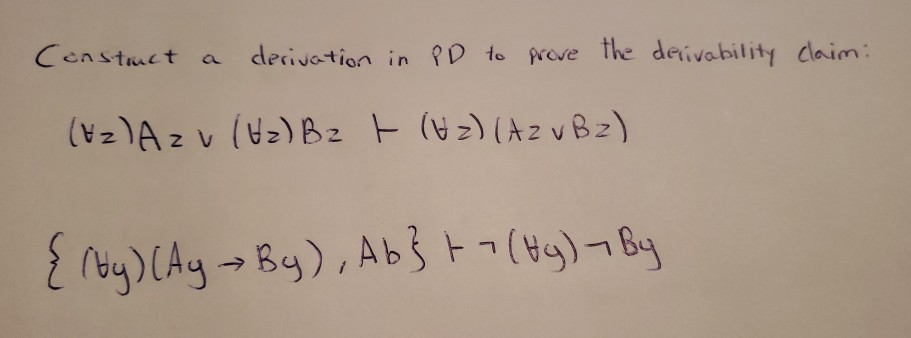 Construct a derivation in PD to prove the derivability claim:
(∀z)Az ∨ (∀z)Bz ⊢ (∀z)(Az ∨ Bz)
{(∀y)(Ay → By), Ab} ⊢ ¬(∀y)¬By